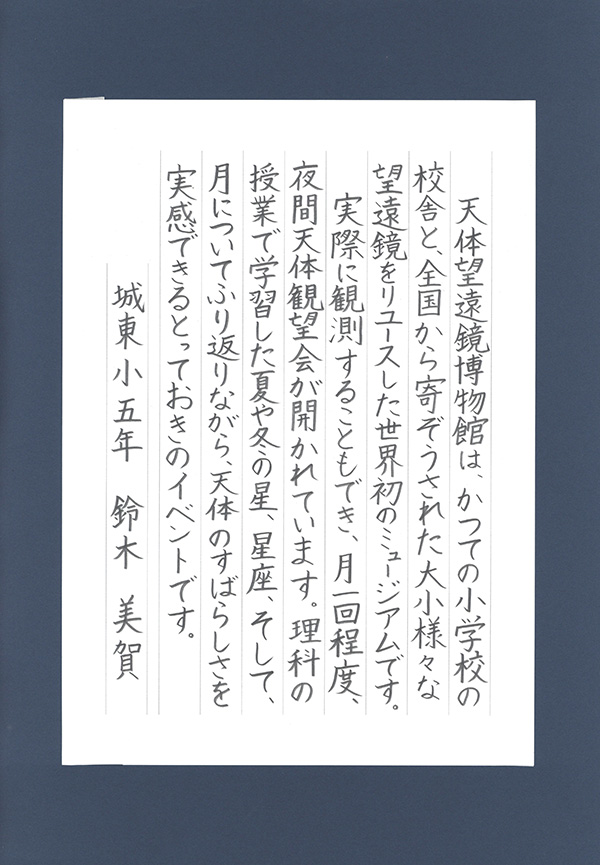 天体望遠鏡博物館は、かつての小学校の
校舎と、全国から寄ぞうされた大小様々な
望遠鏡をリユースした世界初のミュージアムです。
実際に観測することもでき、月一回程度、
夜間天体観望会が開かれています。理科の
授業で学習した夏や冬の星、星座、そして、
月についてふり返りながら、天体のすばらしさを
実感できるとっておきのイベントです。
城東小五年　鈴木　美賀